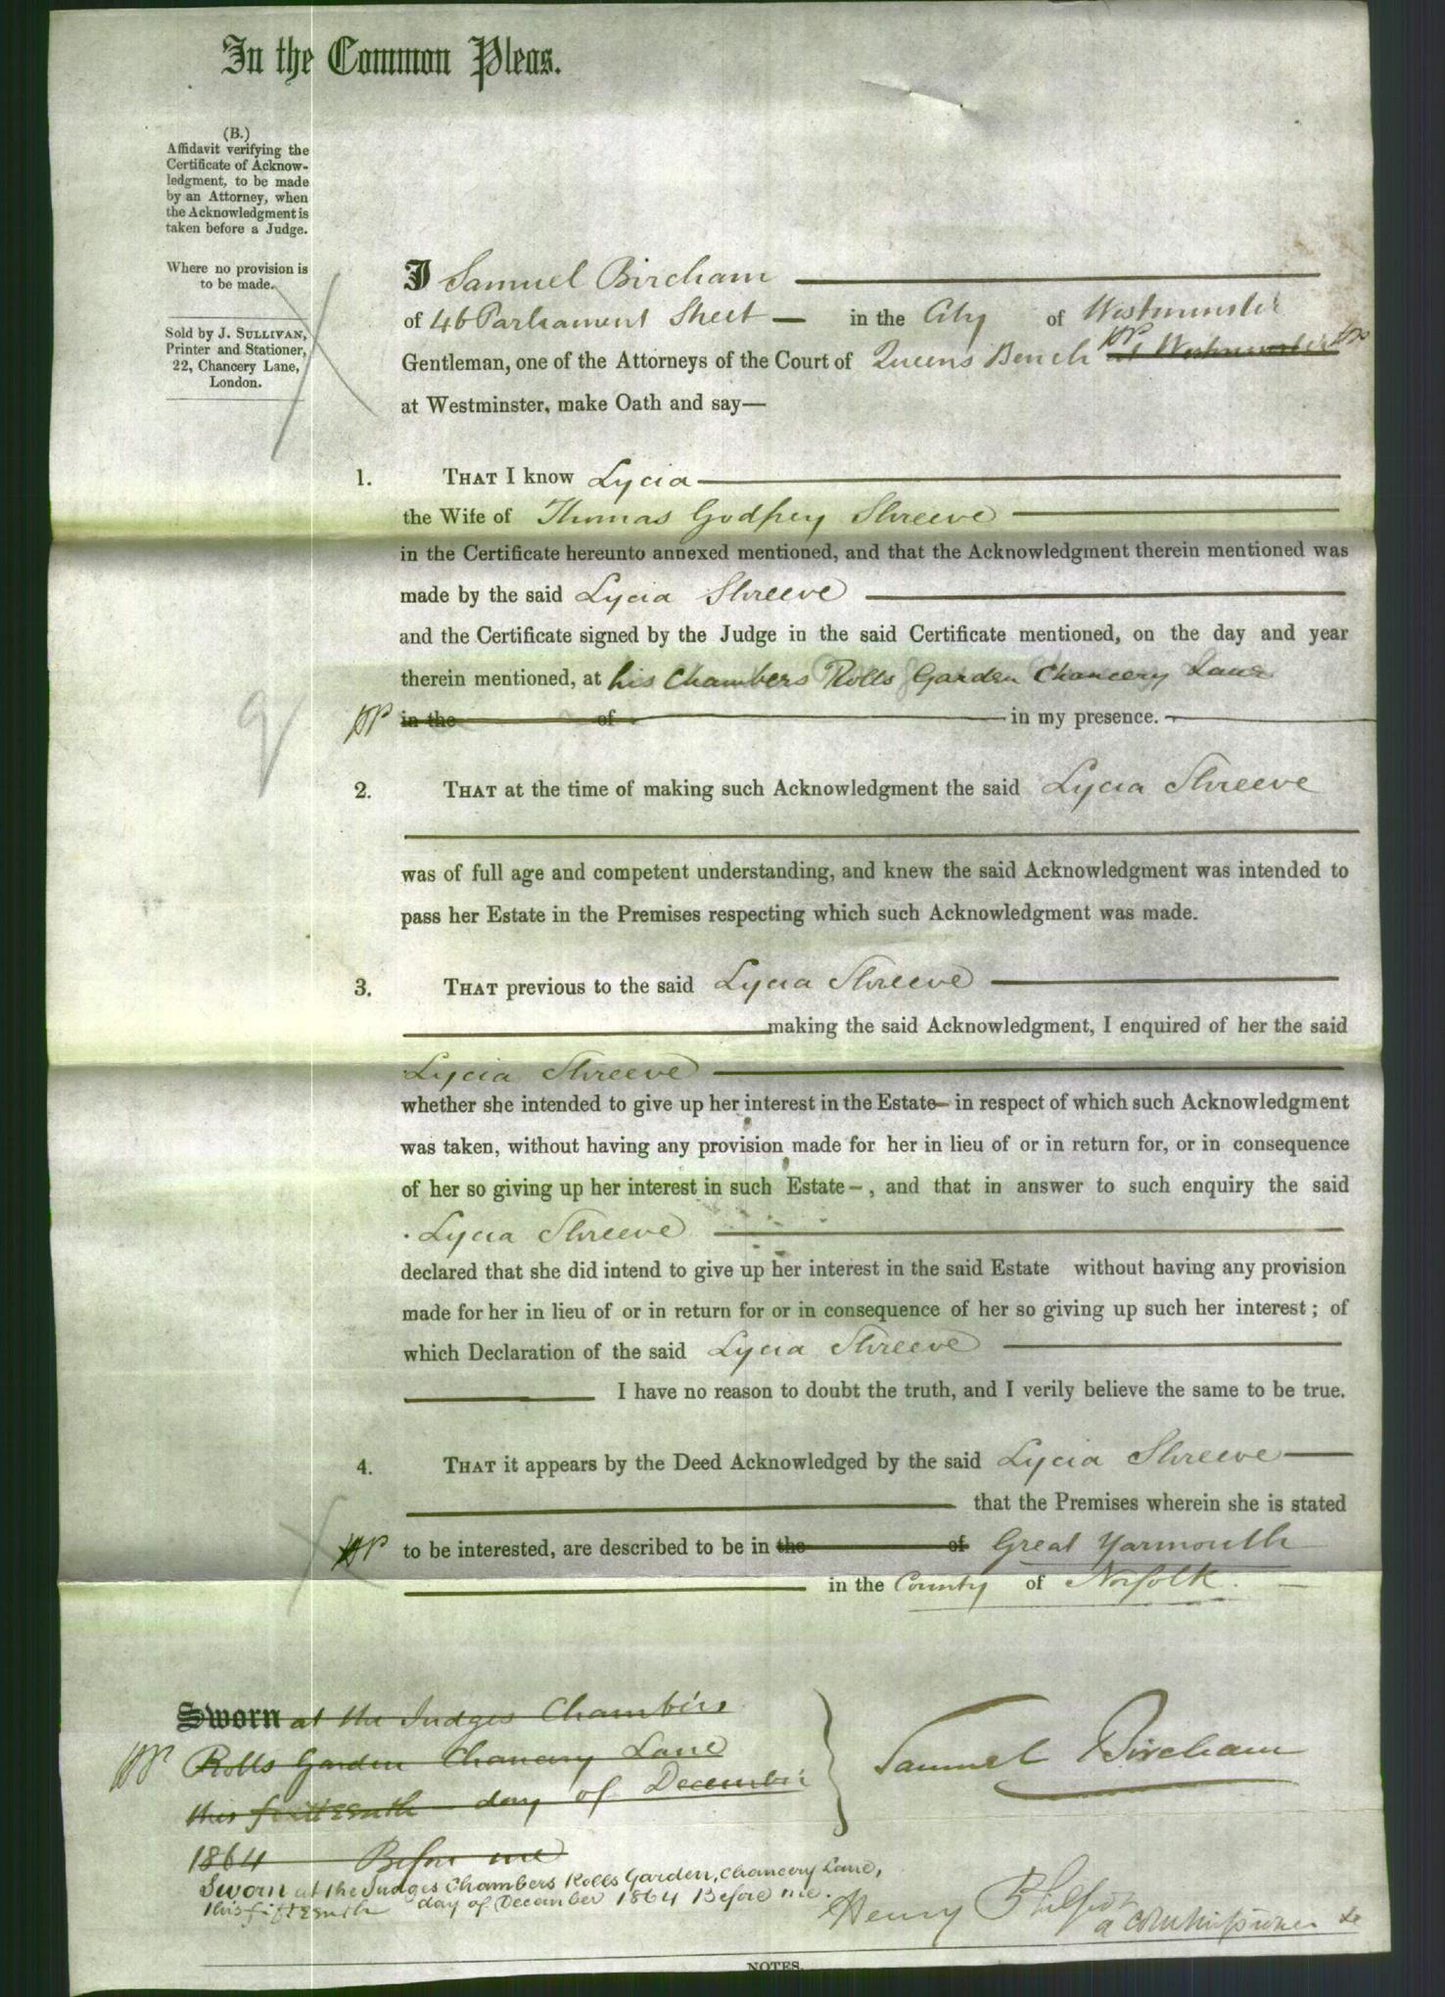 In the Common Pleas.
(B.)
Affidavit verifying the
Certificate of Acknow-
ledgment, to be made
by an Attorney, when
the Acknowledgment is
taken before a Judge.
Where no provision is
to be made.
Sold by J. SULLIVAN,
Printer and Stationer,
22, Chancery Lane,
London.
I Samuel Bircham
of 46 Parliament Street — in the City of Westminster
Gentleman, one of the Attorneys of the Court of Queens Bench at Westminster
at Westminster, make Oath and say—
1. THAT I know Lycia
the Wife of Thomas Godfrey Shreeve
in the Certificate hereunto annexed mentioned, and that the Acknowledgment therein mentioned was
made by the said Lycia Shreeve
and the Certificate signed by the Judge in the said Certificate mentioned, on the day and year
therein mentioned, at his Chambers Rolls Garden Chancery Lane
in the of in my presence.
2. THAT at the time of making such Acknowledgment the said Lycia Shreeve
was of full age and competent understanding, and knew the said Acknowledgment was intended to
pass her Estate in the Premises respecting which such Acknowledgment was made.
3. THAT previous to the said Lycia Shreeve
making the said Acknowledgment, I enquired of her the said
Lycia Shreeve
whether she intended to give up her interest in the Estate— in respect of which such Acknowledgment
was taken, without having any provision made for her in lieu of or in return for, or in consequence
of her so giving up her interest in such Estate–, and that in answer to such enquiry the said
Lycia Shreeve
declared that she did intend to give up her interest in the said Estate without having any provision
made for her in lieu of or in return for or in consequence of her so giving up such her interest; of
which Declaration of the said Lycia Shreeve
I have no reason to doubt the truth, and I verily believe the same to be true.
4. THAT it appears by the Deed Acknowledged by the said Lycia Shreeve
that the Premises wherein she is stated
to be interested, are described to be in the of Great Yarmouth
in the County of Norfolk.
Sworn at the Judges Chambers
Rolls Garden Chancery Lane
this fifteenth day of December
1864 Before me
Samuel Bircham
Sworn at the Judges Chambers Rolls Garden, Chancery Lane,
this fifteenth day of December 1864 Before me.
Henry
a Commissioner &c
NOTES.